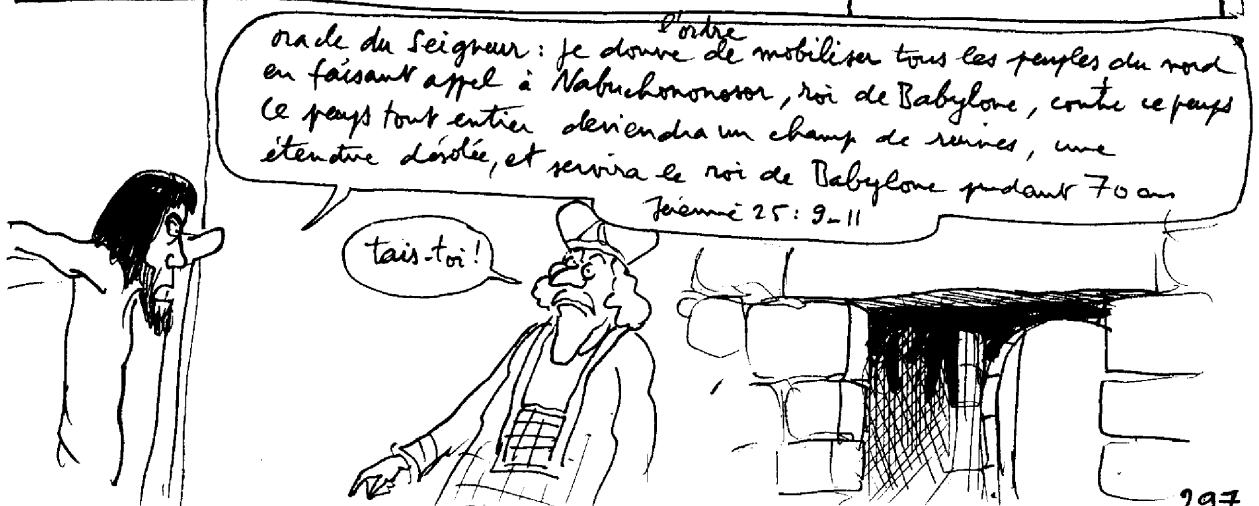 l'ordre
oracle du Seigneur : je donne de mobiliser tous les peuples du nord
en faisant appel à Nabuchononosor, roi de Babylone, contre ce pays
ce pays tout entier deviendra un champ de ruines, une
étendue désolée, et servira le roi de Babylone pendant 70 ans
Jérémie 25 : 9-11
tais-toi !
297